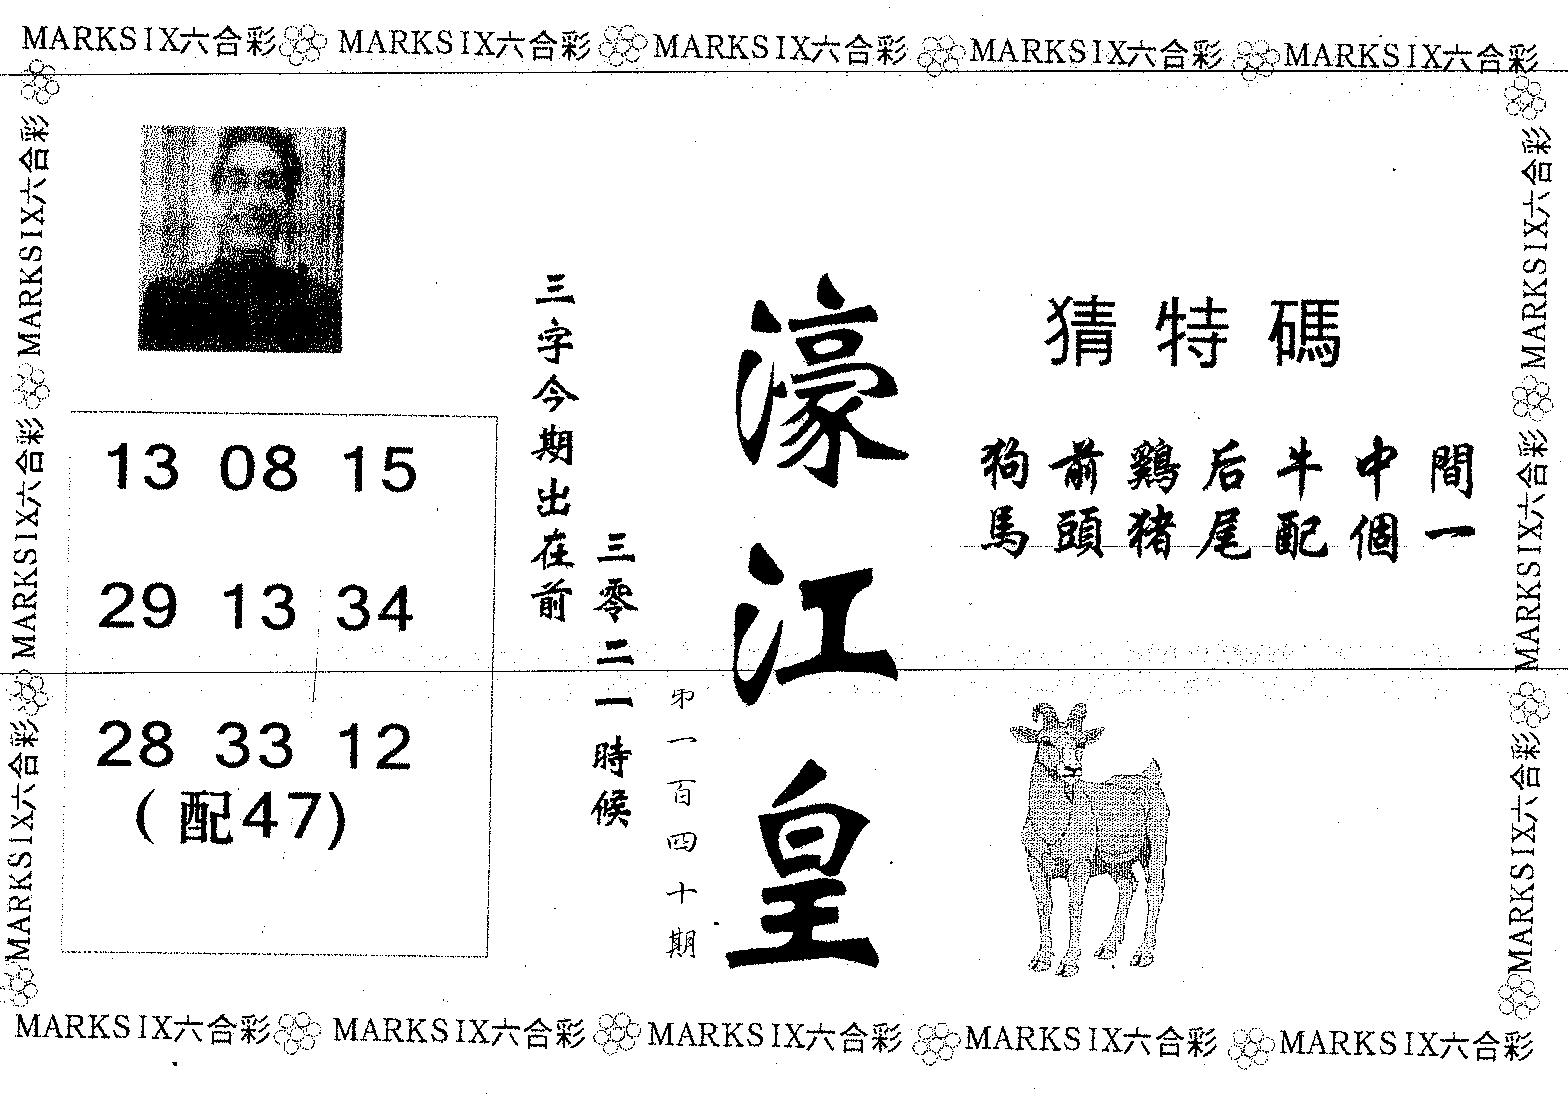 MARKSIX六合彩 MARKSIX六合彩 MARKSIX六合彩 MARKSIX六合彩 MARKSIX六合彩
MARKSIX六合彩 MARKSIX六合彩 MARKSIX六合彩
13 08 15
29 13 34
28 33 12
(配47)
三字今期出在前
三零二一時候
第一百四十期
濠江皇
猜特碼
狗前鷄后牛中間
馬頭猪尾配個一
MARKSIX六合彩 MARKSIX六合彩 MARKSIX六合彩
MARKSIX六合彩 MARKSIX六合彩 MARKSIX六合彩 MARKSIX六合彩 MARKSIX六合彩